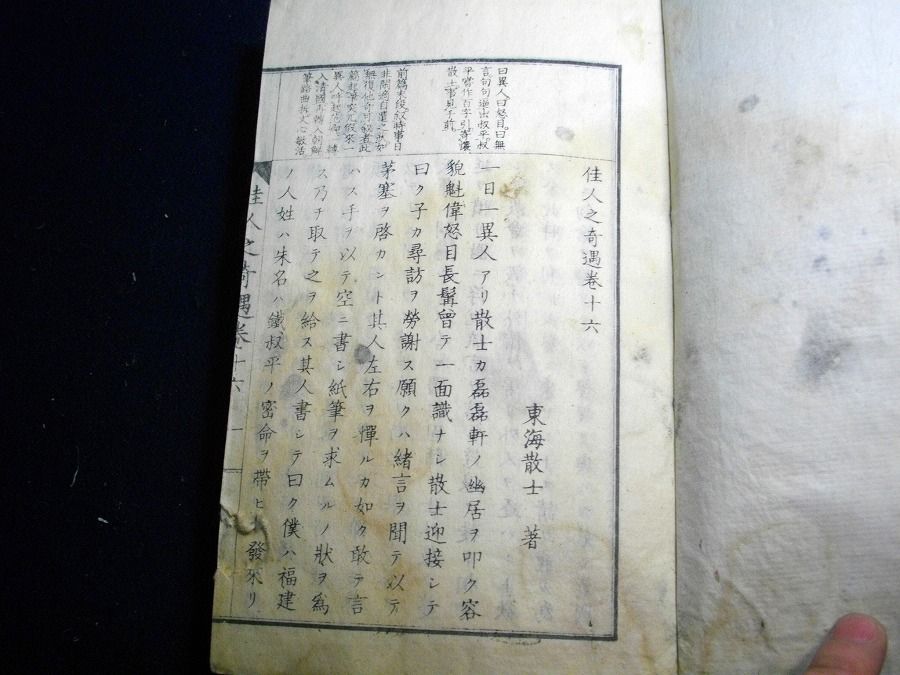 佳人之奇遇卷十六
東海散士 著
一日一異人アリ散士カ磊磊軒ノ幽居ヲ叩ク容
貌魁偉怒目長髯曾テ一面識ナシ散士迎接シテ
曰ク子カ尋訪ヲ勞謝ス願クハ緒言ヲ聞テ以テ
茅塞ヲ啓カント其人左右ヲ憚ルカ如ク敢テ言
ハス手ヲ以テ空ニ書シ紙筆ヲ求ムルノ狀ヲ為
ス乃チ取テ之ヲ給ス其人書シテ曰ク僕ハ福建
ノ人姓ハ朱名ハ鐵叔平ノ密命ヲ帶ヒ 發來リ
曰異人曰怒目曰無
言句句逼出叔平叔
平嘗作百字引寄漢
散士事見于前
前篇末段敘時事日
非
無復他奇可敘者此
篇起筆突兀假來一
異人
入清國
筆路曲折文心敏活
佳人之奇遇卷十六 一